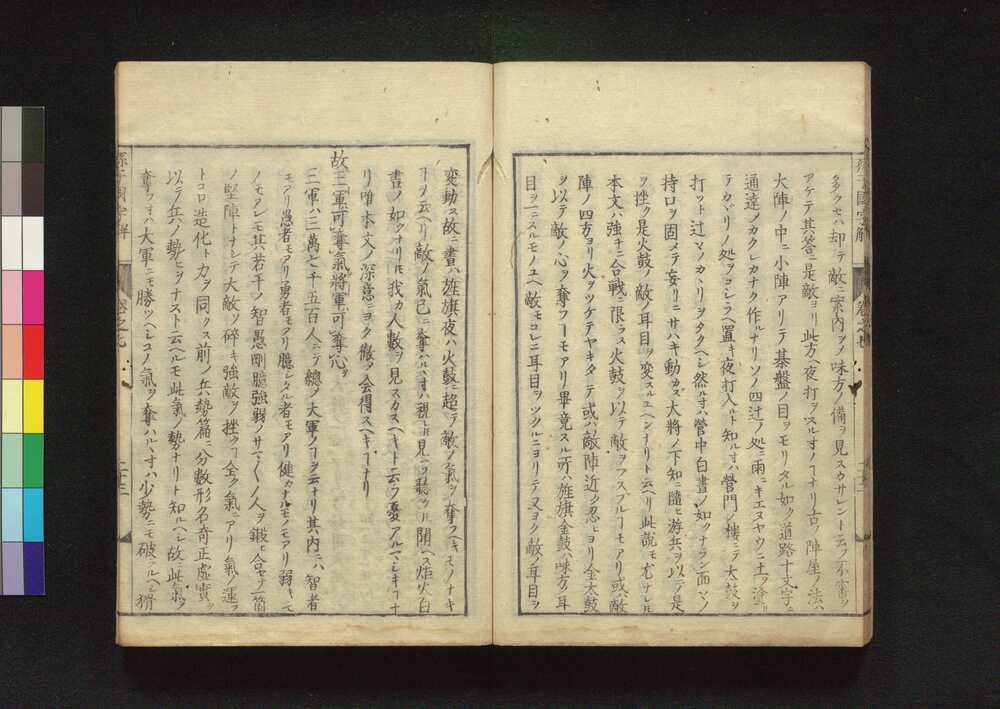 多クセハ却テ敵ニ案内ヲシ味方ノ備ヲ見スカサレントニ云フ不審ヲ
アケテ其答ニ是敵ヨリ此方ヘ夜打ヲスル寸ノヿナリ古ノ陣座ノ法ハ
大陣ノ中ニ小陣アリテ碁盤ノ目ヲモリタル如ク道路十文字ニ
通達ノカクレカナク作ルナリソノ四辻ノ処ニ雨ニキエヌヤウニ土ヲ塗リ
テカヾリノ処ヲコシラヘ置キ夜打入ルト知ル寸ハ營門ノ樓ニテ太鼓ヲ
打ツト辻々ノカヽリヲタクヘシ然ル寸ハ營中白晝ノ如クナラン面々ノ
持口ヲ固メテ妄リニサハキ動カズ大將ノ下知ニ隨ヒ游兵ヲ以テ是
ヲ挫ク是火鼓ノ敵ノ耳目ヲ変スルユヘンナリト云ヘリ此說モ尤サレ𪜈
本文ハ強チニ合戰ニ限ラス火鼓ヲ以テ敵ヲヲスフルヿモアリ或ハ敵
陣ノ四方ヨリ火ヲツケテヤキタテ或ハ敵陣近ク忍ヒヨリ金太鼓
ヲ以テ敵ノ心ヲ奪フヿモアリ畢竟スル所ハ旌旗金鼓ハ味方ノ耳
目ヲ一ニスルモノユヘ敵モコレニ耳目ヲツクルニヨリテ又ヨク敵ノ耳目ヲ
変動ス故ニ晝ハ旌旗夜ハ火鼓ニ超テ敵ノ氣ヲ奪フヘキモノナキ
ヿヲ云ヘリ敵ノ氣已ニ奪ハルヽ寸ハ視レ𪜈見ヘス聽ケ𪜈聞ヘス炬火白
晝ノ如クナリ𪜈我カ人數ヲ見スカスヘキト云フ憂アルマシキヿナ
リ唯本文ノ深意ニヨク徹ヲ會得スヘキヿナリ
故三軍可奪氣將軍可奪心
三軍ハ三萬七千五百人ニテ總〆大軍ノヿヲ云ナリ其內ニハ智者
モアリ愚者モアリ勇者モアリ臆シタル者モアリ健カナルモノモアリ弱キ
ノモアレ𪜈其若干ノ智愚剛臆強弱ノサマ〱ノ人ヲ鍛ヒ合セ一箇
ノ堅陣トナシテ大敵ヲ碎キ強敵ヲ挫クヿ全ク氣ニアリ氣ノ運フ
トコロ造化ト力ヲ同クス前ノ兵勢篇ニ分數形名奇正虛實ヲ
以テ兵ノ勢ヒヲナストニ云ヘルモ此氣ノ勢ナリト知ルヘシ故ニ此氣ヲ
奪フ寸ハ大軍ニモ勝ツヘシコノ氣ヲ奪ハルヽ寸ハ少勢ニモ破ラルヘシ猾